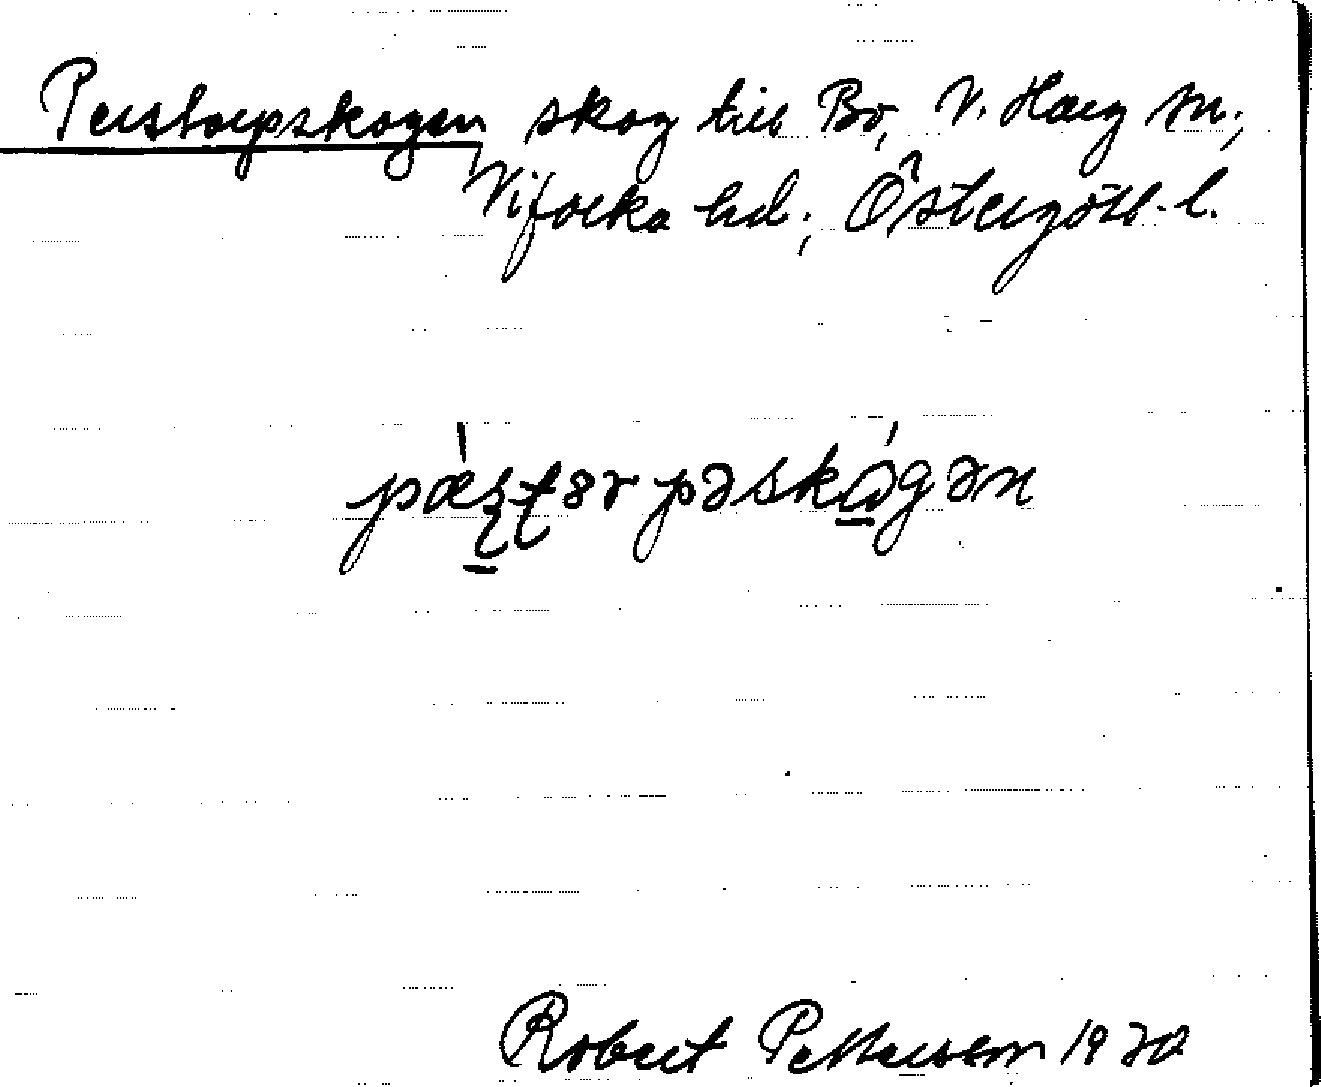 Perstorpskogen skog till Bo, V. Harg sn.,
Vifolka hd., Östergötl. l.
Robert Pettersson 1970